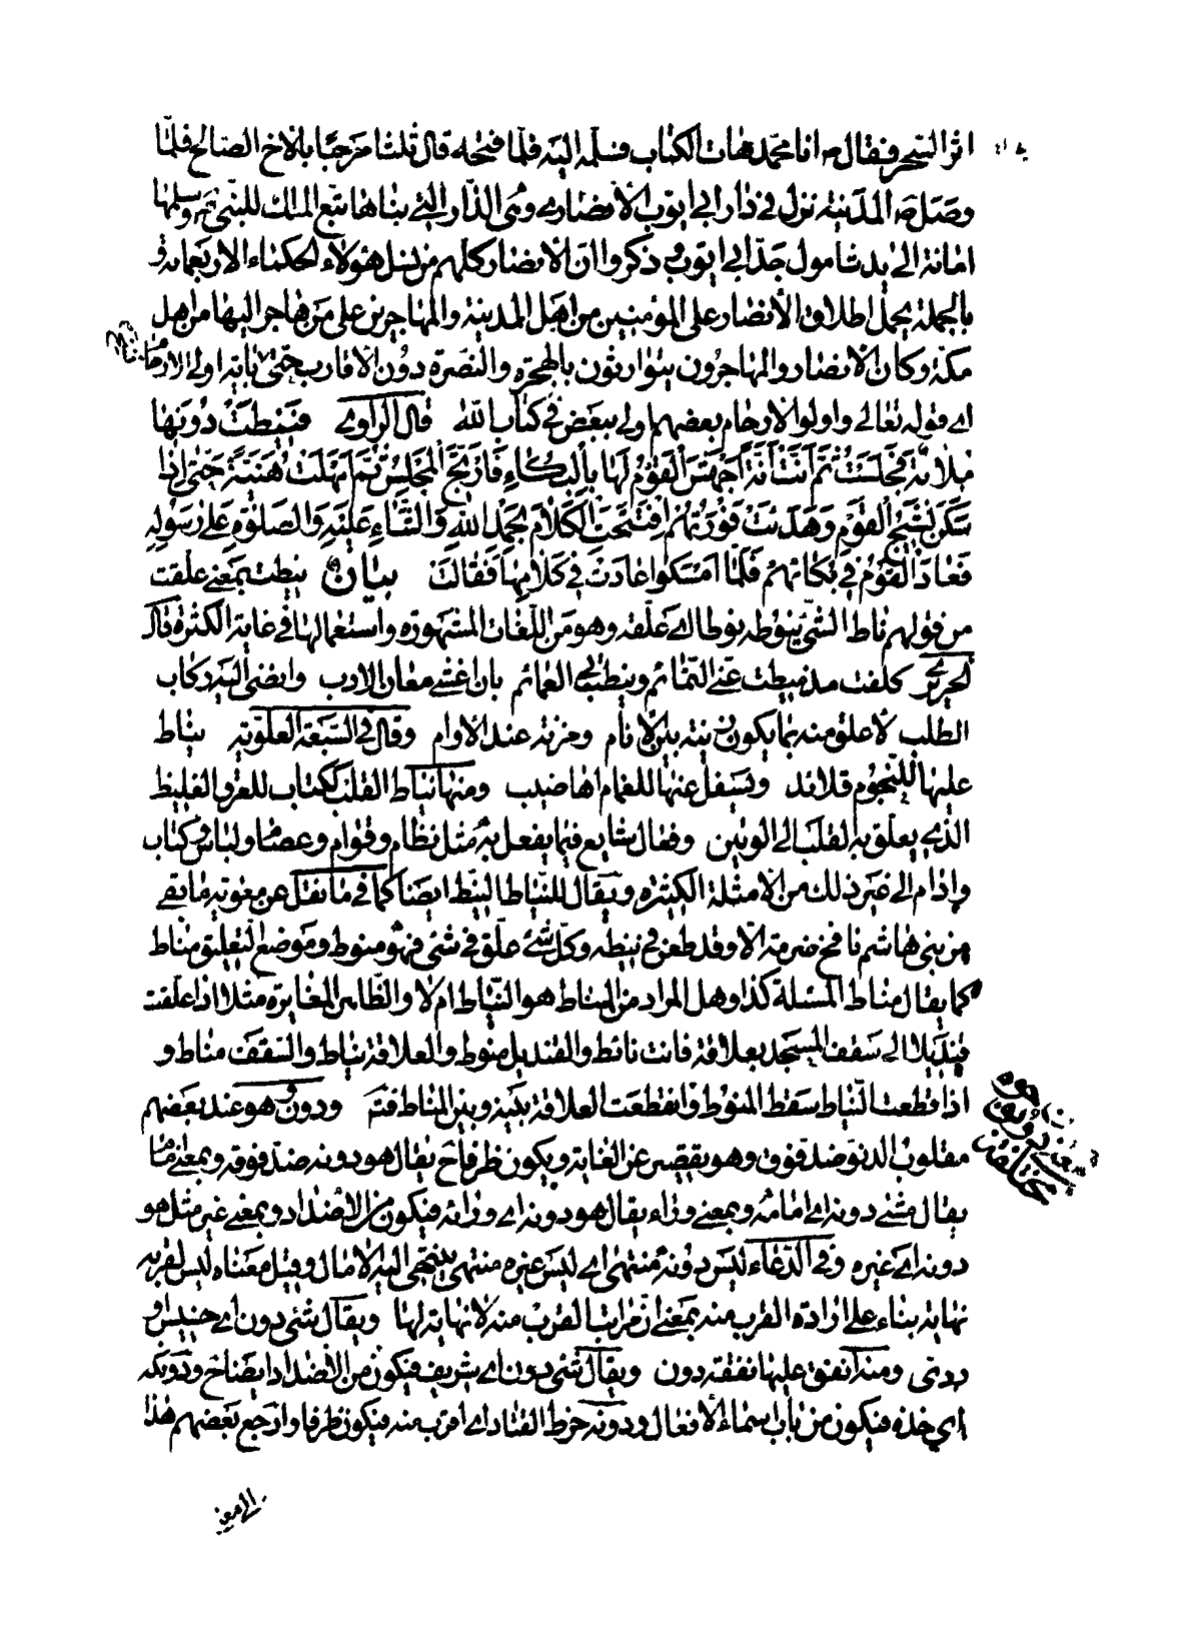 اثر السحر فقال ص انا محمد هات الكتاب فسلمه اليه فلما فتحه قال ثلثا مرحبا بالاخ الصالح فلما
وصل ص المدينة نزل في دار ابي ايوب الانصاري وهي الدار التي بناها تبع الملك للنبي ص وسلمها
امانة الى يد شامول جد ابي ايوب وذكروا ان الانصار كلهم من نسل هؤلاء الحكماء الاربعمائة و
بالجملة يحمل اطلاق الانصار على المؤمنين من اهل المدينة والمهاجرين على من هاجر اليها من اهل
مكة وكان الانصار والمهاجرون يتوارثون بالهجرة والنصرة دون الاقارب حتى اية اولى الارحام
اي قوله تعالى واولوا الارحام بعضهم اولى ببعض في كتاب الله قال الراوي فنيطت دونها
ملاءة فجلست ثم انت انة اجهش القوم لها بالبكاء فارتج المجلس ثم امهلت هنيئة حتى اذا
سكن نشيج القوم وهدئت فورتهم افتتحت الكلام بحمد الله والثناء عليه والصلوة على رسوله
فعاد القوم في بكائهم فلما امسكوا عادت في كلامها فقالت بيان نيطت بمعنى علقت
من قولهم ناط الشئ ينوطه نوطا اي علقه وهو من اللغات المشهورة واستعمالها في غاية الكثرة قال
الحريري كلفت مذ ميطت عني التمائم ونيطت بي العمائم بان اغشى معان الادب وانضي اليه ركاب
الطلب لاعلق منه بما يكون لي زينة بين الانام ومزنة عند الاوام وقال في السبعة العلوية يناط
عليها للنجوم قلائد ويسفل عنها للغمام اهاضيب ومنها نياط القلب ككتاب للعرق الغليظ
الذي يعلق به القلب الى الوتين وفعال شايع فيما يفعل به مثل نظام وقوام وعصام ولباس وكتاب
وادام الى غير ذلك من الامثلة الكثيرة ويقال للنياط النيط ايضا كما في ما نقل عن معوية ما بقي
من بني هاشم نافخ ضرمة الا وقد طعن في نيطه وكل شئ علق في شئ فهو منوط وموضع التعليق مناط
كما يقال مناط المسئلة كذا وهل المراد من المناط هو النياط ام لا والظاهر المغايرة مثلا اذا علقت
قنديلا الى سقف المسجد بعلاقة فانت نائط والقنديل منوط والعلاقة نياط والسقف مناط و
اذا قطعت النياط سقط المنوط وانقطعت العلاقة بينه وبين المناط فتم ودون هو عند بعضهم
مقلوب الدنو ضد فوق وهو يقصر عن الغاية ويكون ظرفا يقال هو دونه ضد فوقه وبمعنى امام
يقال مشى دونه اي امامه وبمعنى وراء يقال هو دونه اي ورائه فيكون من الاضداد وبمعنى غير مثل هو
دونه اي غيره وفي الدعاء ليس دونه منتهى اي ليس غيره منتهى ينتهي اليه الامال وقيل معناه ليس لقربه
نهاية بناء على ارادة القرب منه بمعنى ان مراتب القرب منه لا نهاية لها ويقال شئ دون اي خسيس او
ردئ ومنه انفق عليها نفقة دون ويقال شئ دون اي شريف فيكون من الاضداد ايضا ودونكه
اي خذه فيكون من باب اسماء الافعال ودونه خرط القتاد اي اقرب منه فيكون ظرفا وارجع بعضهم هذا